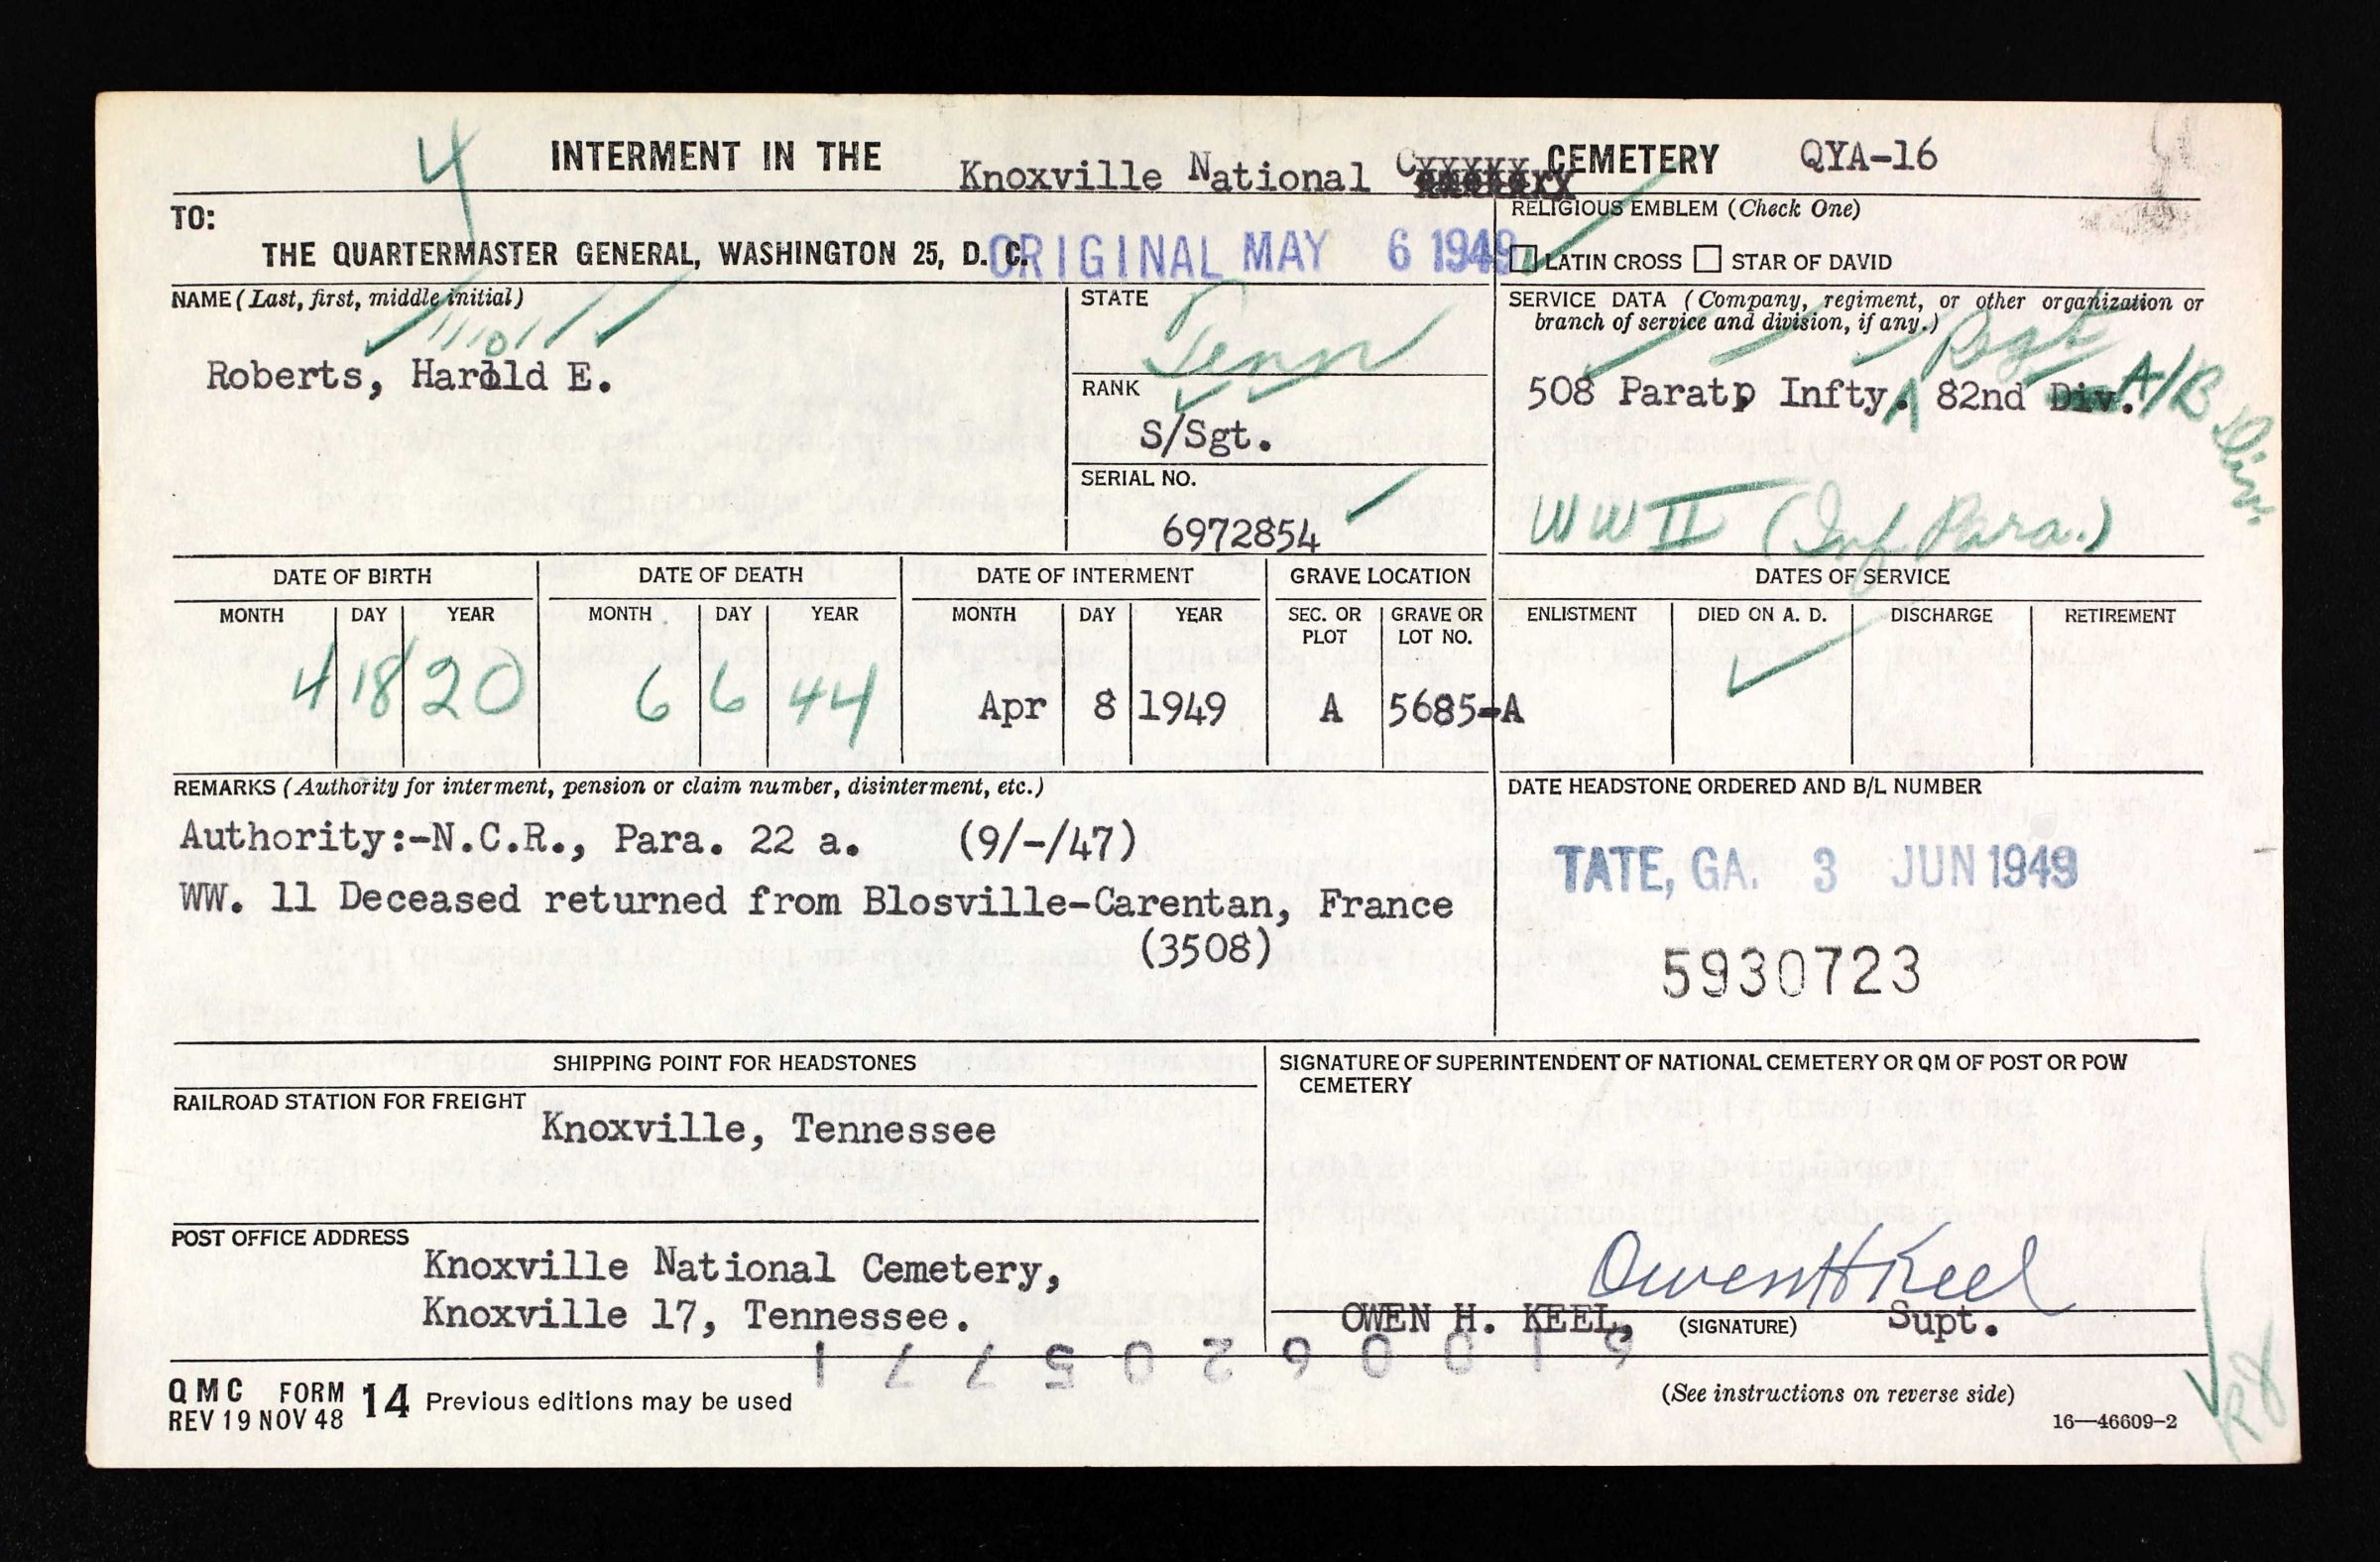 4
INTERMENT IN THE Knoxville National CEMETERY QYA-16
TO:
THE QUARTERMASTER GENERAL, WASHINGTON 25, D. C.
ORIGINAL MAY 6 1949
RELIGIOUS EMBLEM (Check One)
LATIN CROSS STAR OF DAVID
NAME (Last, first, middle initial)
Roberts, Harold E.
STATE
Tenn
RANK
S/Sgt.
SERIAL NO.
6972854
SERVICE DATA (Company, regiment, or other organization or
branch of service and division, if any.)
Regt
508 Paratp Infty. 82nd Div. A/B Div.
WW II (Inf Para.)
DATE OF BIRTH DATE OF DEATH DATE OF INTERMENT GRAVE LOCATION DATES OF SERVICE
MONTH DAY YEAR MONTH DAY YEAR MONTH DAY YEAR SEC. OR PLOT GRAVE OR LOT NO. ENLISTMENT DIED ON A. D. DISCHARGE RETIREMENT
4 18 20 6 6 44 Apr 8 1949 A 5685-A
REMARKS (Authority for interment, pension or claim number, disinterment, etc.)
Authority:-N.C.R., Para. 22 a. (9/-/47)
WW. 11 Deceased returned from Blosville-Carentan, France
(3508)
DATE HEADSTONE ORDERED AND B/L NUMBER
TATE, GA. 3 JUN 1949
5930723
SHIPPING POINT FOR HEADSTONES
RAILROAD STATION FOR FREIGHT
Knoxville, Tennessee
POST OFFICE ADDRESS
Knoxville National Cemetery,
Knoxville 17, Tennessee.
SIGNATURE OF SUPERINTENDENT OF NATIONAL CEMETERY OR QM OF POST OR POW
CEMETERY
Owen H Keel
OWEN H. KEEL, (SIGNATURE) Supt.
QMC FORM 14 Previous editions may be used
REV 19 NOV 48
(See instructions on reverse side)
16—46609-2